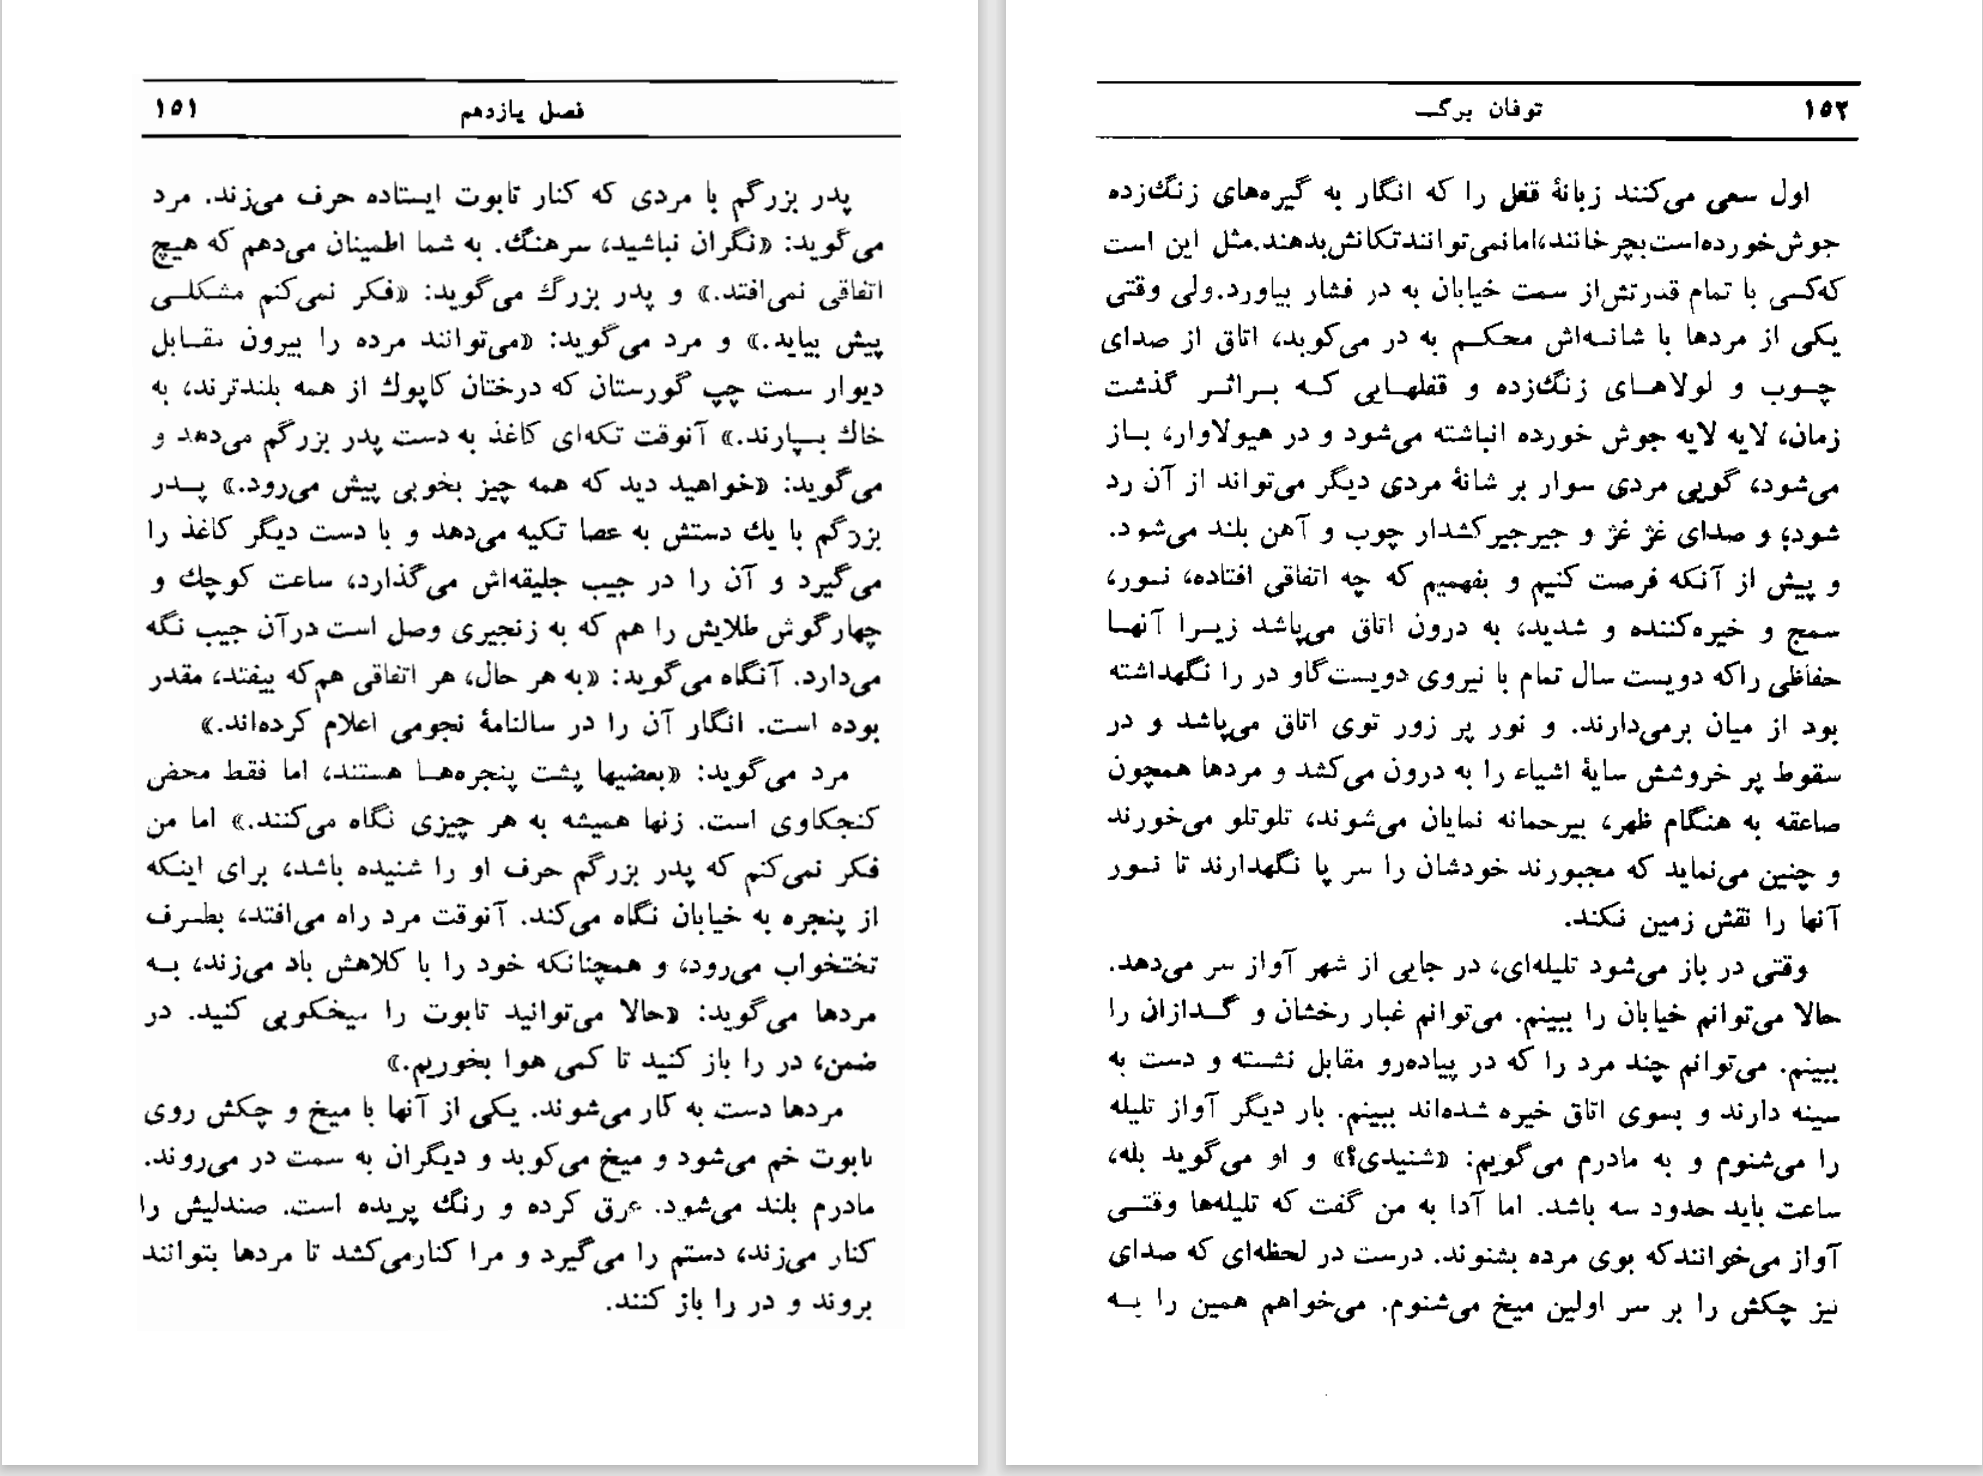 ۱۵۱
فصل یازدهم
پدر بزرگم با مردی که کنار تابوت ایستاده حرف می‌زند. مرد
می‌گوید: «نگران نباشید، سرهنگ. به شما اطمینان می‌دهم که هیچ
اتفاقی نمی‌افتد.» و پدر بزرگ می‌گوید: «فکر نمی‌کنم مشکلی
پیش بیاید.» و مرد می‌گوید: «می‌توانند مرده را بیرون مقابل
دیوار سمت چپ گورستان که درختان کاپوک از همه بلندترند، به
خاک بسپارند.» آنوقت تکه‌ای کاغذ به دست پدر بزرگم می‌دهد و
می‌گوید: «خواهید دید که همه چیز بخوبی پیش می‌رود.» پدر
بزرگم با یک دستش به عصا تکیه می‌دهد و با دست دیگر کاغذ را
می‌گیرد و آن را در جیب جلیقه‌اش می‌گذارد، ساعت کوچک و
چهارگوش طلایش را هم که به زنجیری وصل است درآن جیب نگه
می‌دارد. آنگاه می‌گوید: «به هر حال، هر اتفاقی هم‌که بیفتد، مقدر
بوده است. انگار آن را در سالنامهٔ نجومی اعلام کرده‌اند.»
مرد می‌گوید: «بعضیها پشت پنجره‌ها هستند، اما فقط محض
کنجکاوی است. زنها همیشه به هر چیزی نگاه می‌کنند.» اما من
فکر نمی‌کنم که پدر بزرگم حرف او را شنیده باشد، برای اینکه
از پنجره به خیابان نگاه می‌کند. آنوقت مرد راه می‌افتد، بطرف
تختخواب می‌رود، و همچنانکه خود را با کلاهش باد می‌زند، به
مردها می‌گوید: «حالا می‌توانید تابوت را میخکوبی کنید. در
ضمن، در را باز کنید تا کمی هوا بخوریم.»
مردها دست به کار می‌شوند. یکی از آنها با میخ و چکش روی
تابوت خم می‌شود و میخ می‌کوبد و دیگران به سمت در می‌روند.
مادرم بلند می‌شود. عرق کرده و رنگ پریده است. صندلیش را
کنار می‌زند، دستم را می‌گیرد و مرا کنارمی‌کشد تا مردها بتوانند
بروند و در را باز کنند.
۱۵۲
توفان برگ
اول سعی می‌کنند زبانهٔ قفل را که انگار به گیره‌های زنگ‌زده
جوش‌خورده‌است‌بچرخانند،امانمی‌توانندتکانش‌بدهند.مثل این است
که‌کسی با تمام قدرتش‌از سمت خیابان به در فشار بیاورد.ولی وقتی
یکی از مردها با شانه‌اش محکم به در می‌کوبد، اتاق از صدای
چوب و لولاهای زنگ‌زده و قفلهایی که براثر گذشت
زمان، لایه لایه جوش خورده انباشته می‌شود و در هیولاوار، باز
می‌شود، گویی مردی سوار بر شانهٔ مردی دیگر می‌تواند از آن رد
شود؛ و صدای غژ غژ و جیرجیرکشدار چوب و آهن بلند می‌شود.
و پیش از آنکه فرصت کنیم و بفهمیم که چه اتفاقی افتاده، نور،
سمج و خیره‌کننده و شدید، به درون اتاق می‌پاشد زیرا آنها
حفاظی راکه دویست سال تمام با نیروی دویست‌گاو در را نگهداشته
بود از میان برمی‌دارند. و نور پر زور توی اتاق می‌پاشد و در
سقوط پر خروشش سایهٔ اشیاء را به درون می‌کشد و مردها همچون
صاعقه به هنگام ظهر، بیرحمانه نمایان می‌شوند، تلوتلو می‌خورند
و چنین می‌نماید که مجبورند خودشان را سر پا نگهدارند تا نور
آنها را نقش زمین نکند.
وقتی در باز می‌شود تلیله‌ای، در جایی از شهر آواز سر می‌دهد.
حالا می‌توانم خیابان را ببینم. می‌توانم غبار رخشان و گدازان را
ببینم. می‌توانم چند مرد را که در پیاده‌رو مقابل نشسته و دست به
سینه دارند و بسوی اتاق خیره شده‌اند ببینم. بار دیگر آواز تلیله
را می‌شنوم و به مادرم می‌گویم: «شنیدی؟» و او می‌گوید بله،
ساعت باید حدود سه باشد. اما آدا به من گفت که تلیله‌ها وقتی
آواز می‌خوانندکه بوی مرده بشنوند. درست در لحظه‌ای که صدای
تیز چکش را بر سر اولین میخ می‌شنوم. می‌خواهم همین را به